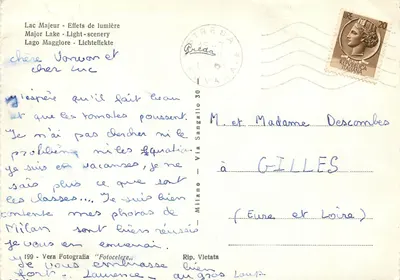 Lac Majeur - Effets de lumière
Major Lake - Light-scenery
Lago Maggiore - Lichteffekte
chère et
cher Luc
J'espère qu'il fait beau
et que les tomates poussent.
Je n'ai pas chercher ni le
ni les
je suis en vacances, je ne
sais plus ce que sont
les classes.... Je suis bien
contente mes photos de
Milan sont bien réussies
je vous en
Je vous embrasse bien
fort - Laurence - au gros Loup
199 - Vera Fotografia "Fotocelere"
Rip. Vietata
Milano - Via Sangallo 30
20
M. et Madame Descombes
à
GILLES
(Eure et Loire)